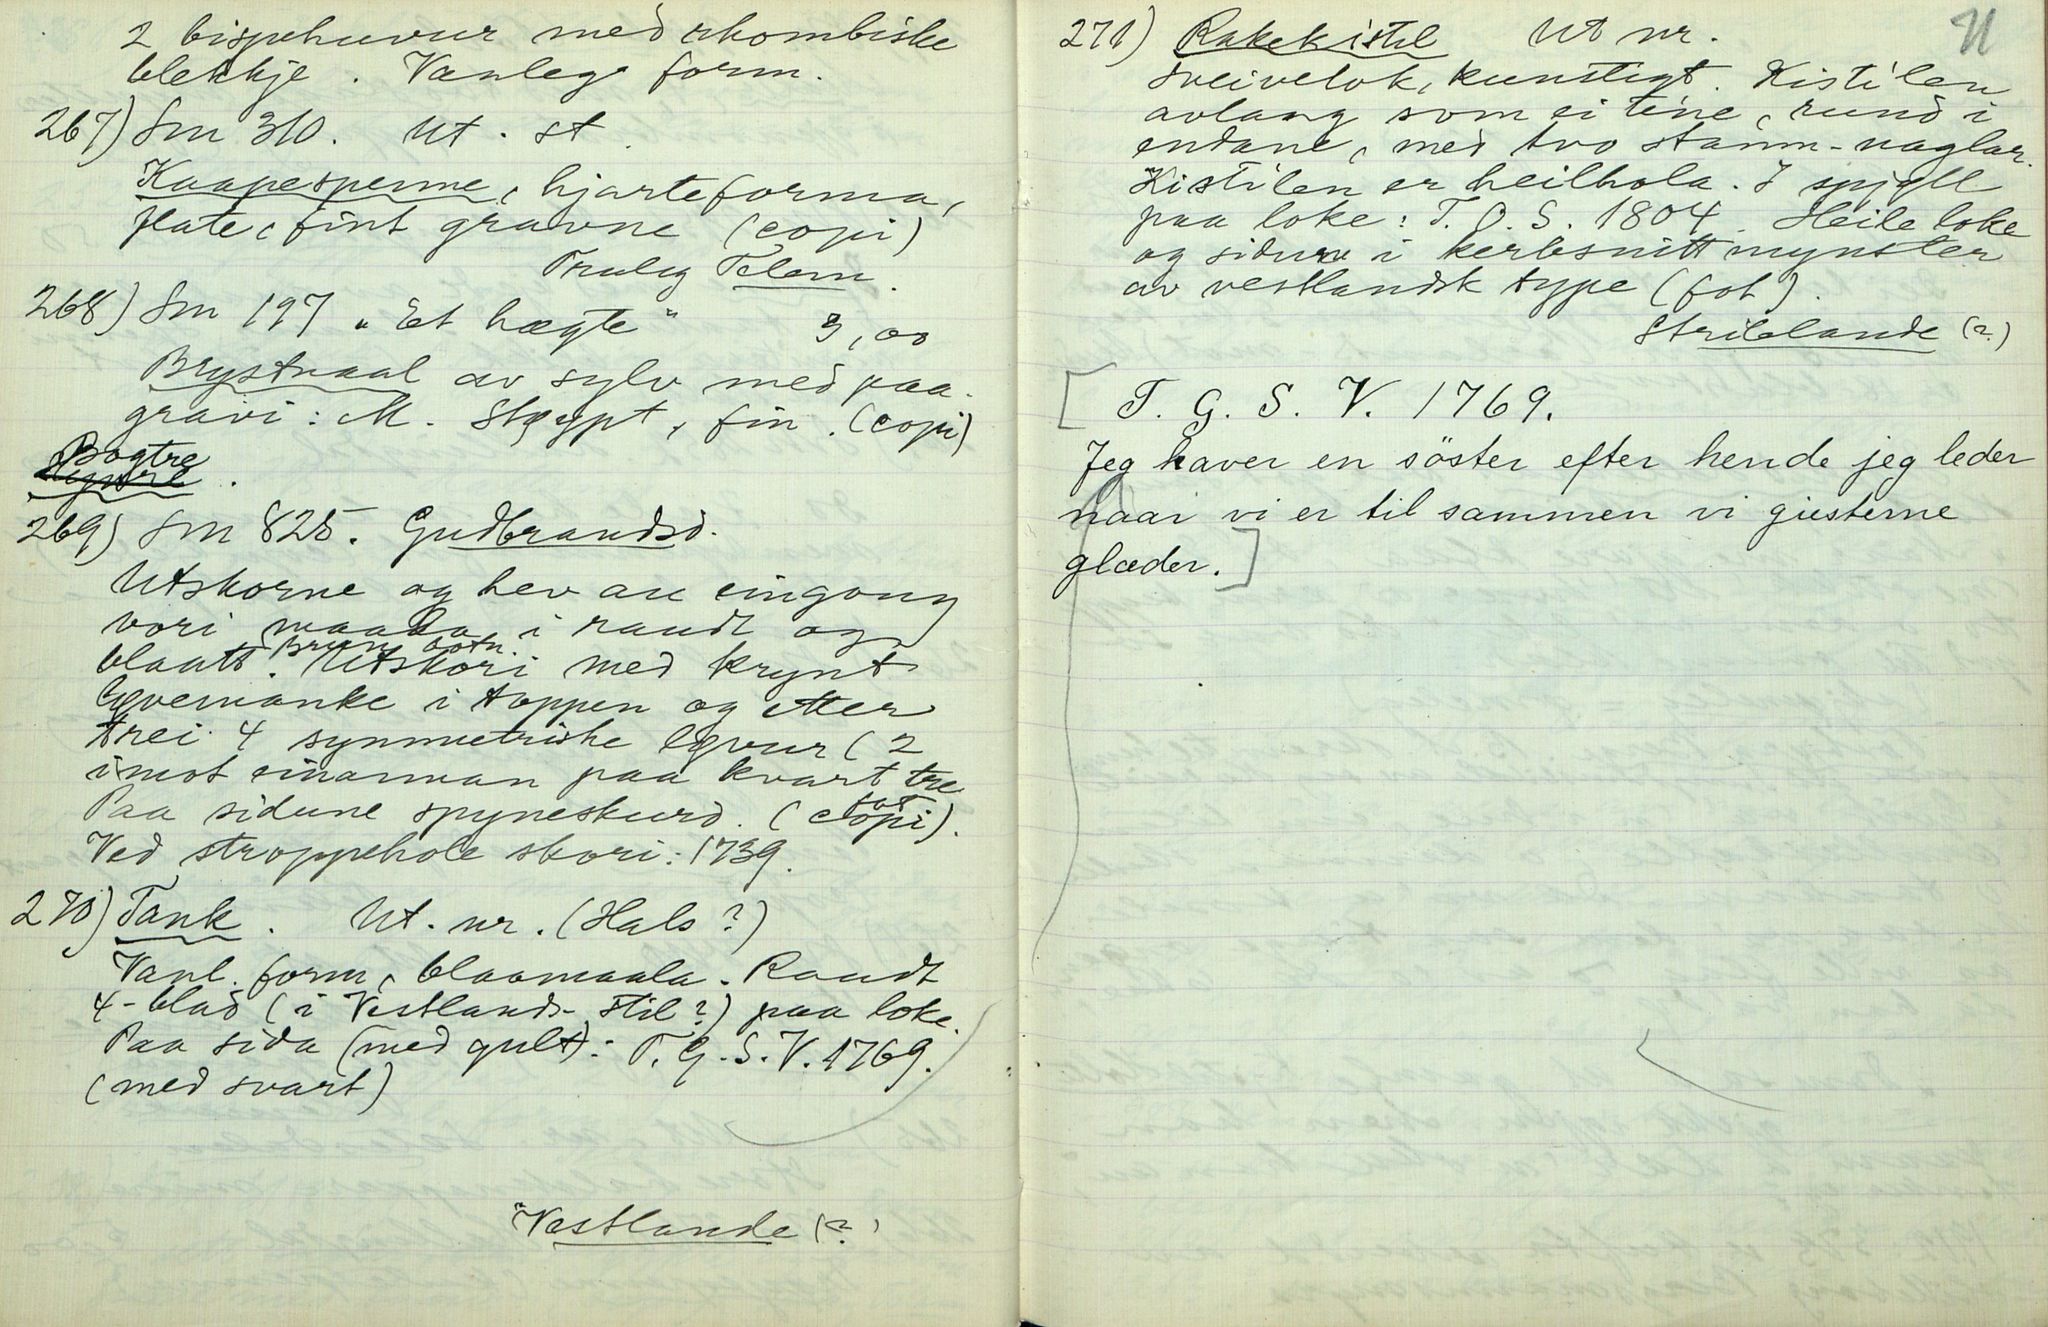 2 bispehuvur med rhombiske
blekkje. Vanlege form.
267) Sm 310. Ut. st.
Kaapespenne, hjarteforma,
flate, fint gravne (copi)
Truleg Telem.
268) Sm 197 "Et hægte" 3,00
Brystnaal av sylv med paa-
gravi: M. Skeypt, fin. (copi)
Bogtre
269) Sm 825. Gudbrandsd.
Utskorne og hev au eingong
vori maala i raudt og
blaatt. Brun botn. Utskori med krynt
løvemanke i toppen og etter
trei 4 symmetriske løvur (2
imot einannan paa kvart tre
Paa sidune spyneskurd. (copi) fot
Ved stroppehole skori: 1739.
270) Tank. Ut. nr. (Hals?)
Vanl. form, blaamaala. Raudt
4-blad (i Vestlands-stil?) paa loke.
Paa sida (med gult): T. G. S. V. 1769.
(med svart)
Vestlande (?)
271) Rakekistil Ut nr. 71
Sveivelok, kunstigt. Kistilen
avlang som ei tine, rund i
endane, med tvo stamn-naglar.
Kistilen er heilhola. I spjøll
paa loke: T. O. S. 1804. Heile loke
og sidune i kerbsnittmynster
av vestlandsk type (fot).
Strilelande (?)
[T. G. S. V. 1769.
Jeg haver en söster efter hende jeg leder
naar vi er til sammen vi giesterne
glæder.]